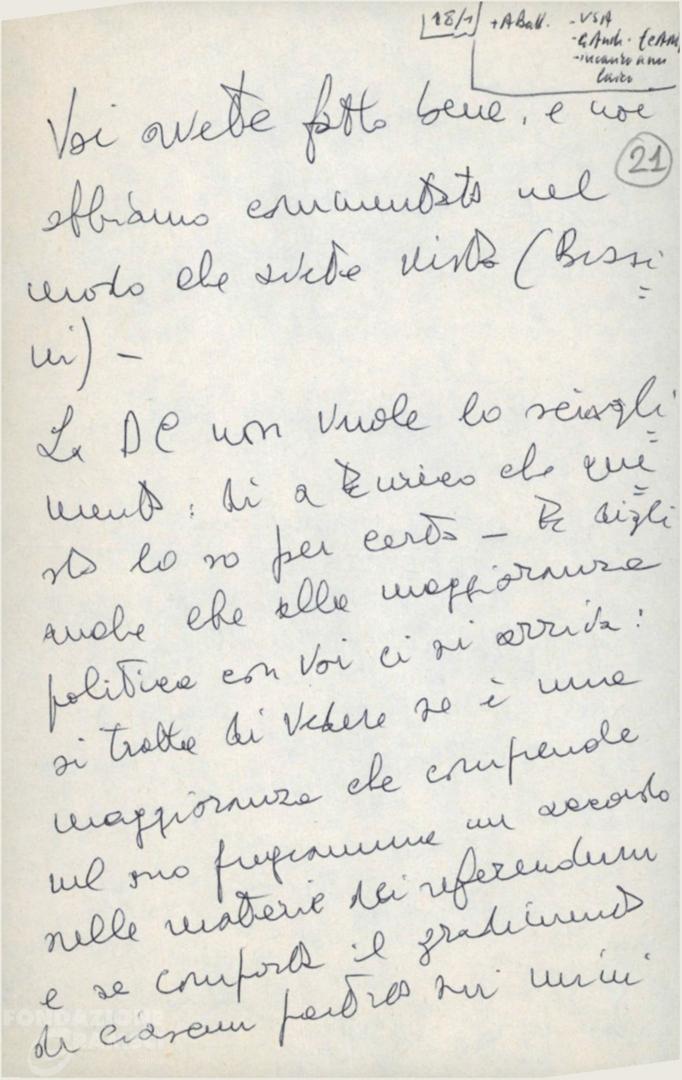 18/1 + A Batt. - USA
- G. Andr.
- incauro a un
laico
Voi avete fatto bene, e noi
21
abbiamo commentato nel
modo che avete visto (Bassi
ni) -
La DC non vuole lo sciogli
mento: di a Enrico che que
sto lo so per certo - E digli
anche che alla maggioranza
politica con voi ci si arriva:
si tratta di vedere se è una
maggioranza che comprende
nel suo programma un accordo
nelle materie dei referendum
e se comporta il gradimento
di ciascun partito sui mini
FONDAZIONE